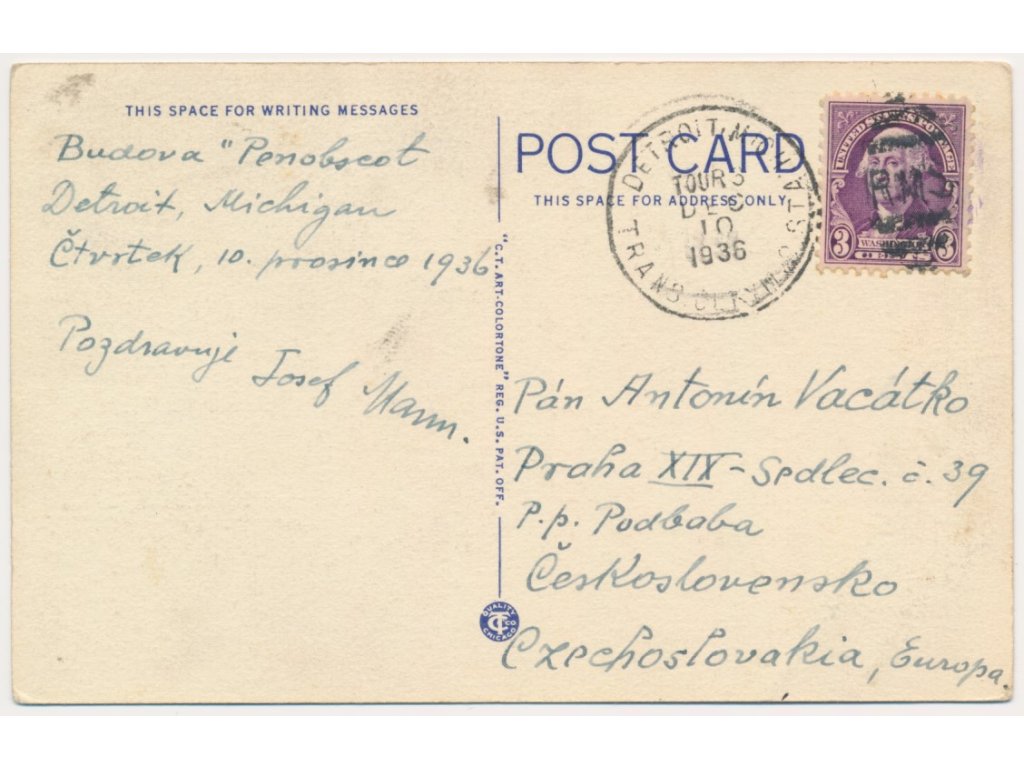 THIS SPACE FOR WRITING MESSAGES
Budova "Penobscot
Detroit, Michigan
Čtvrtek, 10. prosince 1936
Pozdravuje
Josef Mann.
"C.T. ART-COLORTONE" REG. U.S. PAT. OFF.
QUALITY
CHICAGO
POST CARD
THIS SPACE FOR ADDRESS ONLY
DETROIT, MICH.
TOUR 3
DEC
10
1936
UNITED STATES POSTAGE
3 WASHINGTON 3
CENTS
Pán Antonín Vacátko
Praha XIX - Sedlec. č. 39
P.p. Podbaba
Československo
Czechoslovakia, Europa.